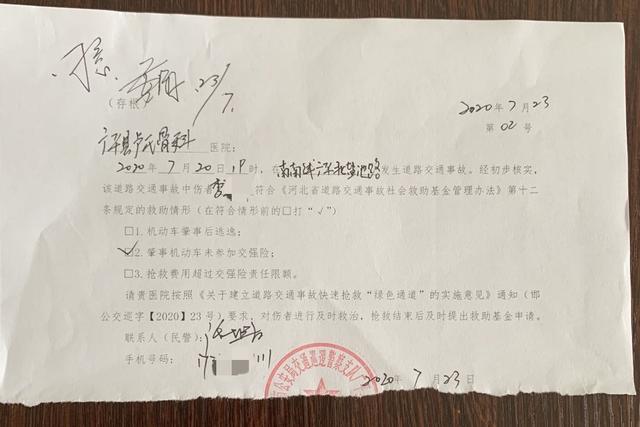 同意.
23/7.
（存根）
2020年7月23
第02号
广平县卢氏骨科 医院：
2020年7月20日19时，在 发生道路交通事故。经初步核实，
该道路交通事故中伤者李 符合《河北省道路交通事故社会救助基金管理办法》第十二
条规定的救助情形（在符合情形前的□打“√”）
□1.机动车肇事后逃逸；
☑2.肇事机动车未参加交强险；
□3.抢救费用超过交强险责任限额。
请贵医院按照《关于建立道路交通事故快速抢救“绿色通道”的实施意见》通知（邯
公交巡字【2020】23号）要求，对伤者进行及时救治，抢救结束后及时提出救助基金申请。
联系人（民警）：
手机号码：
公安局交通巡逻警察支队
2020年7月23日